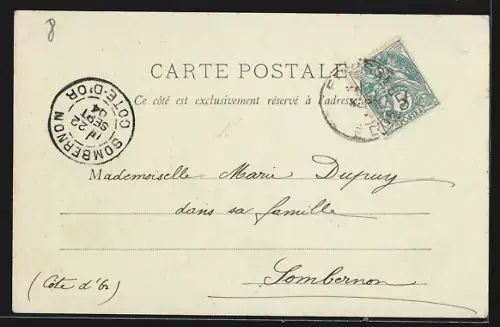 8
CARTE POSTALE
Ce côté est exclusivement réservé à l'adresse
SOMBERNON
CÔTE-D'OR
22
SEPT
04
5
Mademoiselle Marie Dupuy
dans sa famille
Sombernon
(Côte d'Or)